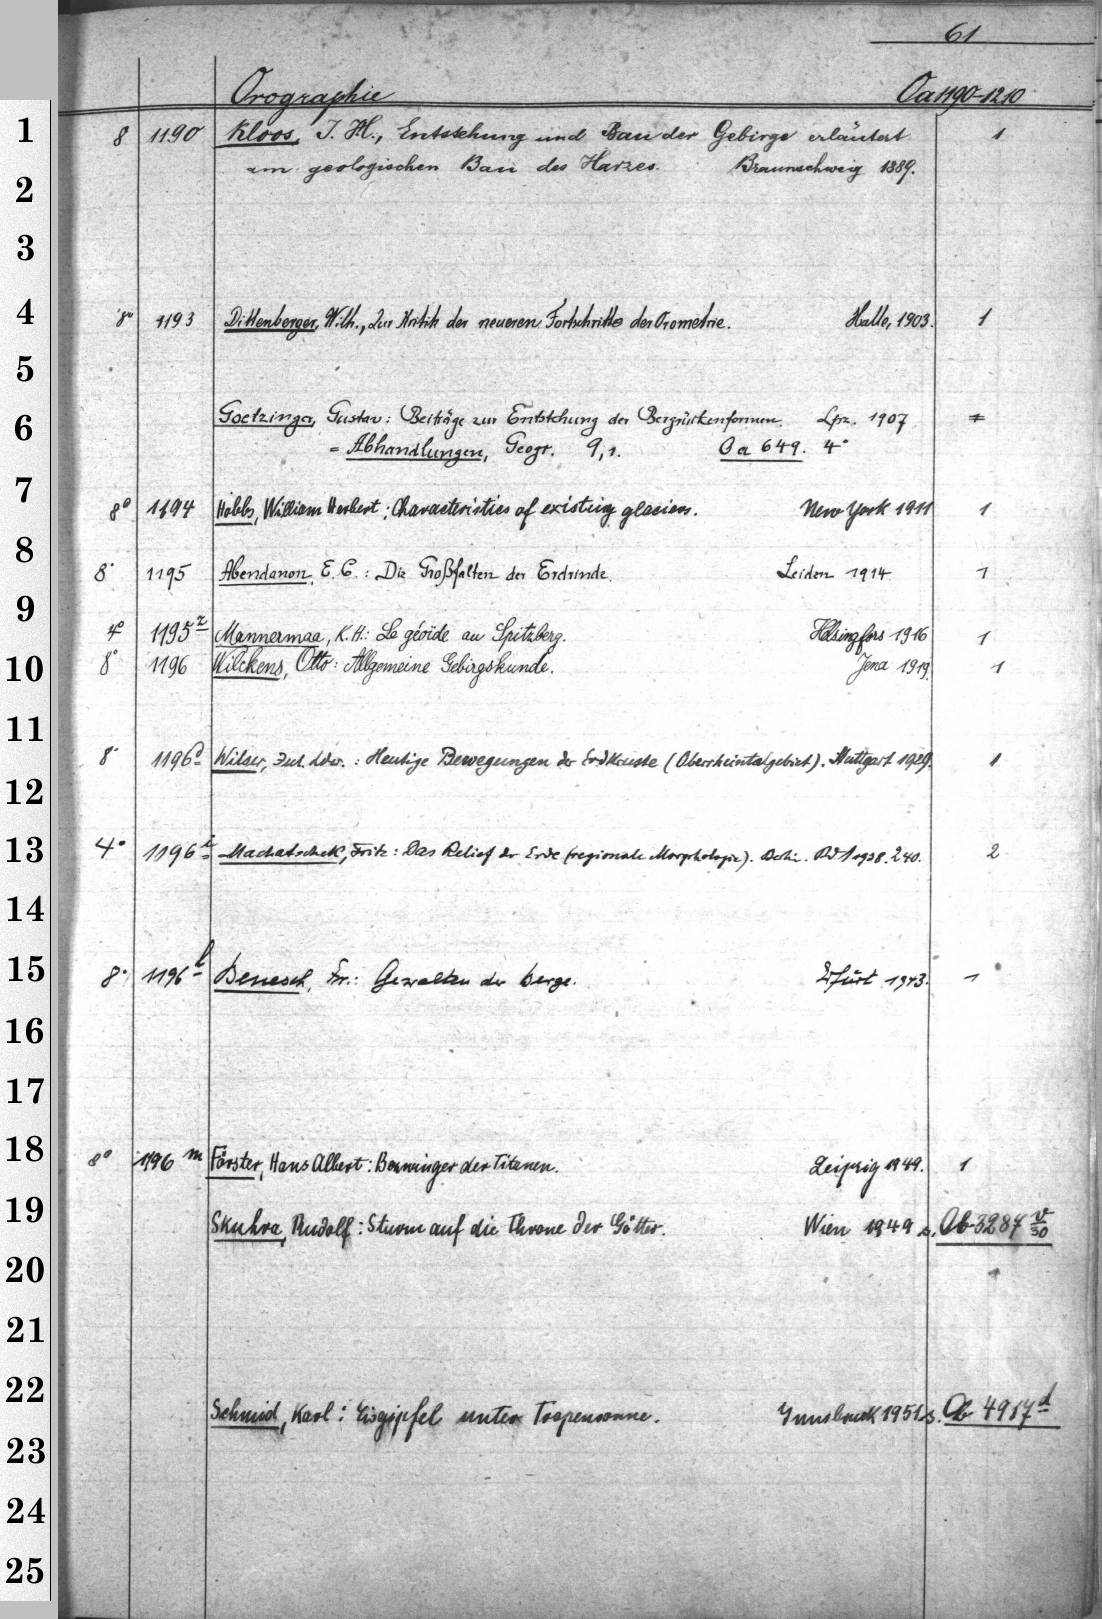 61
Orographie Oa 1190-1210
1 8 1190 Kloos, J. H., Entstehung und Bau der Gebirge erläutert 1
2 am geologischen Bau des Harzes. Braunschweig 1889.
3
4 8° 1193 Dittenberger, Wilh., Zur Kritik der neueren Fortschritte der Orometrie. Halle, 1903. 1
5
6 Goetzinger, Gustav: Beiträge zur Entstehung der Bergrückenformen. Lpz. 1907
= Abhandlungen, Geogr. 9,1. Oa 649. 4°
7 8° 1194 Hobbs, William Herbert: Characteristics of existing glaciers. New York 1911 1
8 8° 1195 Abendanon, E. C.: Die Großfalten der Erdrinde. Leiden 1914 1
9 4° 1195z Mannermaa, K. H.: Le géoide au Spitzberg. Helsingfors 1916 1
10 8° 1196 Wilckens, Otto: Allgemeine Gebirgskunde. Jena 1919. 1
11
12 8° 1196 Wilser, Jul. Ldw.: Heutige Bewegungen der Erdkruste (Oberrheintalgebiet). Stuttgart 1929. 1
13 4° 1196 Machatschek, Fritz: Das Relief der Erde (regionale Morphologie). Berlin. Bd 1 1938. 240. 2
14
15 8° 1196l Benesch, Fr.: Gewalten der Berge. Erfurt 1943. 1
16
17
18 8° 1196m Förster, Hans Albert: Bezwinger der Titanen. Leipzig 1949. 1
19 Skuhra, Rudolf: Sturm auf die Throne der Götter. Wien 1949 s. Ob 3287 v/30
20
21
22 Schmid, Karl: Eisgipfel unter Tropensonne. Innsbruck 1951 s. Ob 4917d
23
24
25